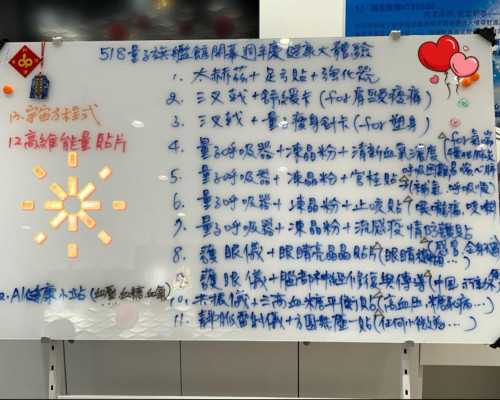 518量子旗艦館開幕週年慶健康大體驗
1. 太赫茲+足弓貼+強化器
2. 三叉戟+舒緩卡(for肩頸痠痛)
3. 三叉戟+量子瘦身針卡(for塑身)
4. 量子呼吸器+凍晶粉+清新血氧濃度(for氣喘
5. 量子呼吸器+凍晶粉+官柱貼(補氣、呼吸順)
6. 量子呼吸器+凍晶粉+止咳貼(喉嚨痛、咳嗽)
7. 量子呼吸器+凍晶粉+流感疫情防護貼
8. 護眼儀+眼睛亮晶晶貼片(眼睛模糊…)
9. 護眼儀+腦部神經修復與傳導(中風
10. 三高血糖平衡貼(高血血、糖尿病…)
11. 靜脈雷射儀+方圓無塵一貼(任何小傷
13. 宇宙方程式
12高維能量貼片
AI健康小站(血壓、血糖、血氧)